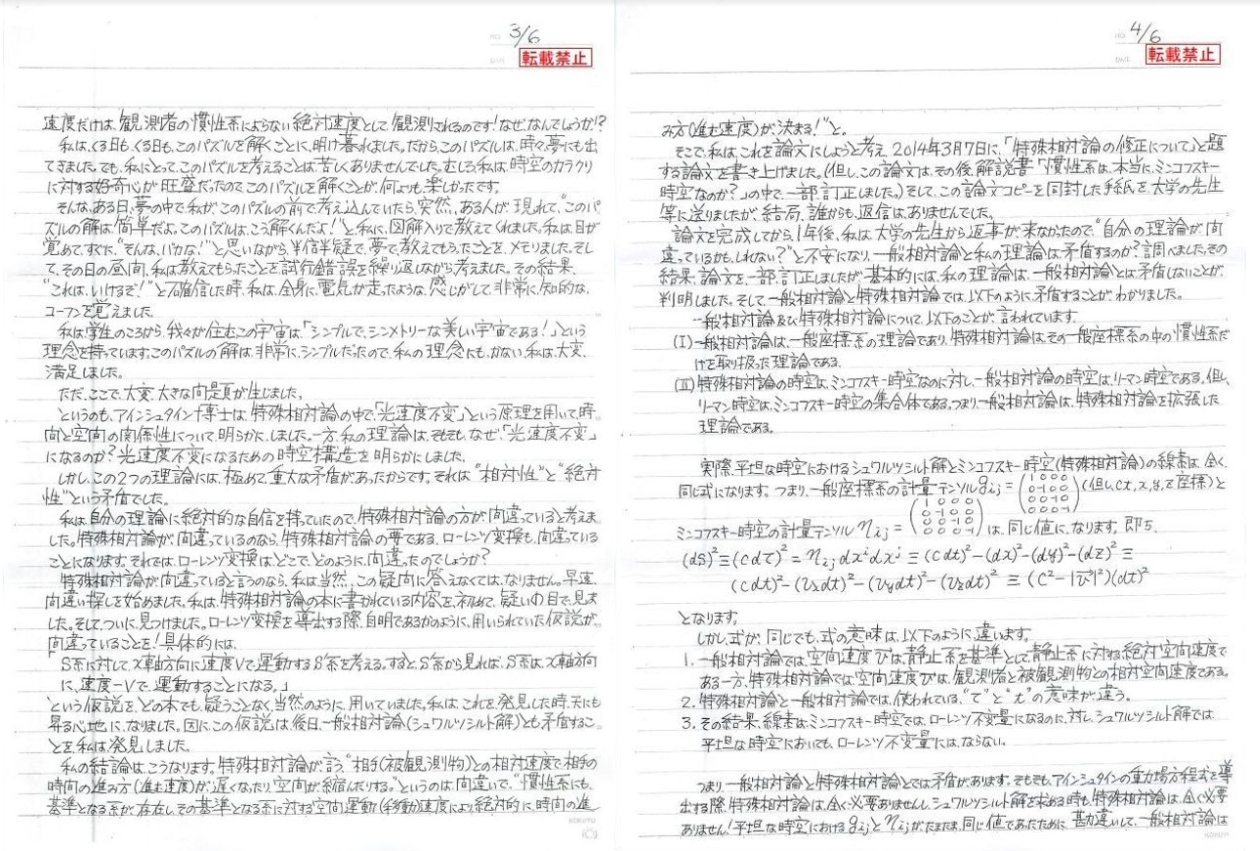 NO. 3/6
転載禁止
速度だけは、観測者の慣性系によらない絶対速度として観測されるのです!なぜ、なんでしょうか!?
私は、くる日も、くる日も、このパズルを解くことに、明け暮れました。だから、このパズルは、時々、夢にも出
てきました。でも、私にとって、このパズルを考えることは苦しくありませんでした。むしろ、私は、時空のカラクリ
に対する好奇心が旺盛だったので、このパズルを解くことが、何よりも楽しかったです。
そんな、ある日、夢の中で私が、このパズルの前で、考え込んでいたら、突然、ある人が現れて、"このパ
ズルの解は簡単だよ。このパズルは、こう解くんだよ!"と私に、図解入りで教えてくれました。私は目が
覚めて、すぐに、"そんな、バカな!"と思いながら、半信半疑で、夢で、教えてもらったことを、メモりました。そし
て、その日の昼間、私は教えてもらったことを試行錯誤を繰り返しながら考えました。その結果、
"これは、いけるぞ!"と確信した時、私は、全身に、電気が走ったような、感じがして、非常に、知的な、
コーフンを覚えました。
私は学生のころから、我々が住むこの宇宙は、「シンプルで、シンメトリーな美しい宇宙である!」という
理念を持っています。このパズルの解は、非常に、シンプルだったので、私の理念にも、かない、私は、大変、
満足しました。
ただ、ここで、大変、大きな問題が生じました。
というのも、アインシュタイン博士は、特殊相対論の中で、「光速度不変」という原理を用いて、時
間と空間の関係性について、明らかに、しました。一方、私の理論は、そもそも、なぜ、「光速度不変」
になるのか?光速度不変になるための時空構造を明らかにしました。
しかし、この2つの理論には、極めて重大な矛盾があったからです。それは"相対性"と"絶対
性"という矛盾でした。
私は自分の理論に絶対的な自信を持っていたので、特殊相対論の方が、間違っていると考えま
した。特殊相対論が、間違っているのなら、特殊相対論の要である、ローレンツ変換も、間違っている
ことになります。それでは、ローレンツ変換は、どこで、どのように、間違ったのでしょうか?
特殊相対論が間違っていると言うのなら、私は当然、この疑問に答えなくては、なりません。早速、
間違い探しを始めました。私は、特殊相対論の本に書かれている内容を、初めて、疑いの目で、見ま
した。そして、ついに、見つけました。ローレンツ変換を導出する際、自明であるかのように、用いられていた仮説が、
間違っていることを!具体的には、
「S系に対して、x軸方向に速度Vで運動するS'系を考える。すると、S'系から見れば、S系は、x軸方向
に、速度−Vで、運動することになる。」
という仮説を、どの本でも、疑うことなく、当然のように、用いていました。私は、これを、発見した時、天にも
昇る心地に、なりました。因に、この仮説は、後日、一般相対論(シュワルツシルト解)とも矛盾するこ
とを、私は、発見しました。
私の結論は、こうなります。特殊相対論が言う、"相手(被観測物)との相対速度で、相手の
時間の進み方(進む速度)が、遅くなったり、空間が、縮んだりする。"というのは、間違いで、"慣性系にも、
基準となる系が、存在し、その基準となる系に対する空間運動(移動)速度により、絶対的に、時間の進
NO. 4/6
転載禁止
み方(進む速度)が、決まる!"と。
そこで、私は、これを論文にしようと考え、2014年3月7日に、「特殊相対論の修正について」と題
する論文を書き上げました。(但し、この論文は、その後、解説書「慣性系は、本当に、ミンコフスキー
時空なのか?」の中で、一部、訂正しました。)そして、この論文コピーを同封した手紙を、大学の先生
等に送りましたが、結局、誰からも、返信は、ありませんでした。
論文を完成してから、1年後、私は、大学の先生から返事が来なかったので、"自分の理論が、間
違っているかも、しれない?"と不安になり、一般相対論と私の理論は、矛盾するのか?調べました。その
結果、論文を、一部、訂正しましたが、基本的には、私の理論は、一般相対論とは、矛盾しないことが、
判明しました。そして、一般相対論と特殊相対論では、以下のように、矛盾することが、わかりました。
一般相対論及び特殊相対論について、以下のことが、言われています。
(I)一般相対論は、一般座標系の理論であり、特殊相対論は、その一般座標系の中の慣性系だ
けを取り扱った理論である。
(II)特殊相対論の時空は、ミンコフスキー時空なのに対し、一般相対論の時空は、リーマン時空である。但し、
リーマン時空は、ミンコフスキー時空の集合体である。つまり、一般相対論は、特殊相対論を拡張した
理論である。
実際、平坦な時空におけるシュワルツシルト解とミンコフスキー時空(特殊相対論)の線素は、全く、
同じ式になります。つまり、一般座標系の計量テンソル gij = (1 0 0 0 / 0 -1 0 0 / 0 0 -1 0 / 0 0 0 -1)(但し、ct, x, y, z 座標)と
ミンコフスキー時空の計量テンソル ηij = (1 0 0 0 / 0 -1 0 0 / 0 0 -1 0 / 0 0 0 -1) は、同じ値に、なります。即ち、
(dS)² ≡ (cdτ)² = ηij dxⁱ dxʲ ≡ (cdt)² − (dx)² − (dy)² − (dz)² ≡
(cdt)² − (vxdt)² − (vydt)² − (vzdt)² ≡ (c² − |v|²)(dt)²
となります。
しかし、式が、同じでも、式の意味は、以下のように、違います。
1. 一般相対論では、空間速度vは、静止系を基準として、静止系に対する絶対空間速度で
ある一方、特殊相対論では、空間速度vは、観測者と被観測物との相対空間速度である。
2. 特殊相対論と一般相対論では、使われている、"τ"と"t"の意味が違う。
3. その結果、線素は、ミンコフスキー時空では、ローレンツ不変量になるのに、対し、シュワルツシルト解では
平坦な時空においても、ローレンツ不変量には、ならない。
つまり、一般相対論と特殊相対論とでは、矛盾があります。そもそも、アインシュタインの重力場方程式を導
出する際、特殊相対論は、全く、必要ありませんし、シュワルツシルト解を求める時も、特殊相対論は、全く、必要
ありません!平坦な時空における gij と ηij が、たまたま、同じ値であったために、勘違いして、一般相対論は